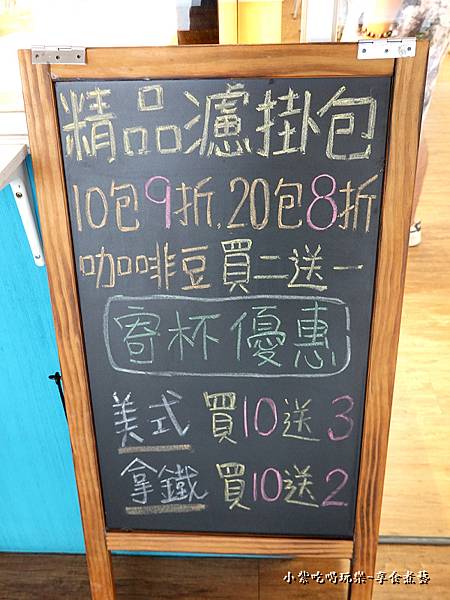 精品濾掛包
10包9折.20包8折
咖啡豆買二送一
寄杯優惠
美式 買10送3
拿鐵 買10送2
小紫吃喝玩樂~享食煮藝